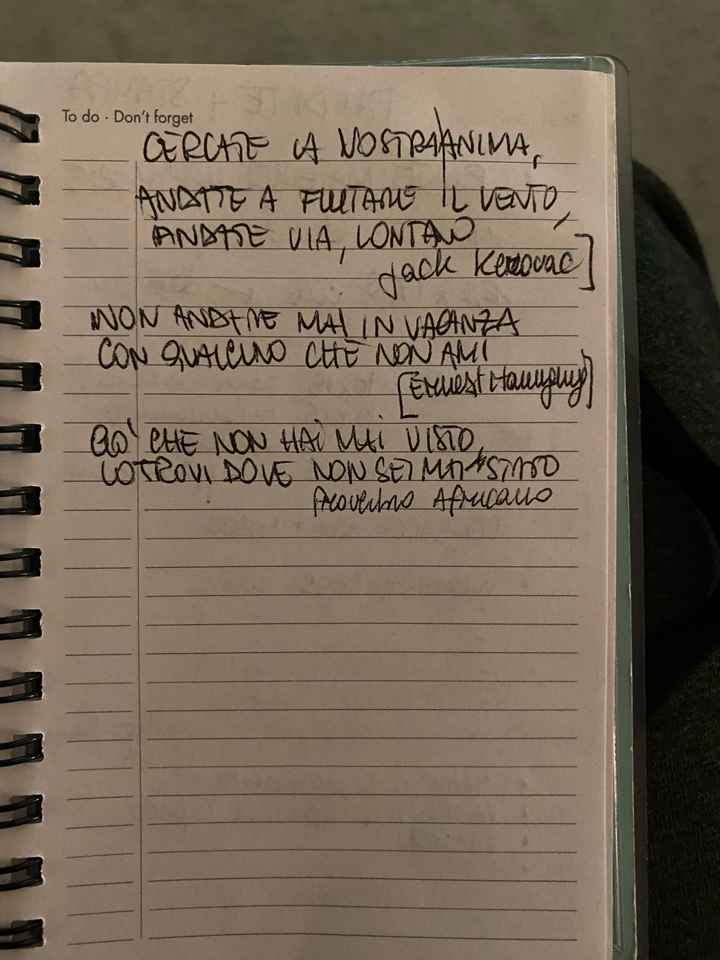 To do · Don't forget
CERCATE LA VOSTRA ANIMA,
ANDATE A FIUTARE IL VENTO,
ANDATE VIA, LONTANO
Jack Kerouac]
NON ANDARE MAI IN VACANZA
CON QUALCUNO CHE NON AMI
[Ernest Hemingway]
CIO' CHE NON HAI MAI VISTO,
LO TROVI DOVE NON SEI MAI STATO
Proverbio Africano